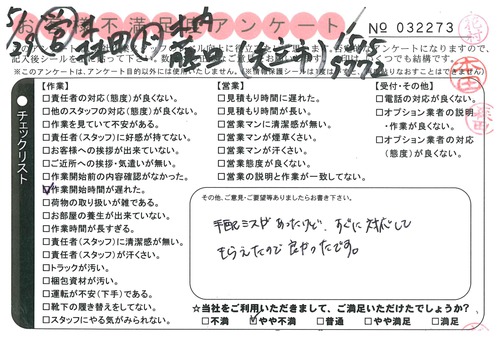 お客様不満足度アンケート
№ 032273
チェックリスト
【作業】
□責任者の対応(態度)が良くない。
□他のスタッフの対応(態度)が良くない。
□作業を見ていて不安がある。
□責任者(スタッフ)に好感が持てない。
□お客様への挨拶が出来ていない。
□ご近所への挨拶・気遣いが無い。
□作業開始前の内容確認がなかった。
☑作業開始時間が遅れた。
□荷物の取り扱いが雑である。
□お部屋の養生が出来ていない。
□作業時間が長すぎる。
□責任者(スタッフ)に清潔感が無い。
□責任者(スタッフ)が汗くさい。
□トラックが汚い。
□梱包資材が汚い。
□運転が不安(下手)である。
□靴下の履き替えをしてない。
□スタッフにやる気がみられない。
【営業】
□見積もり時間に遅れた。
□見積もり時間が長い。
□営業マンに清潔感が無い。
□営業マンが煙草くさい。
□営業マンが汗くさい。
□営業態度が良くない。
□営業の説明と作業が一致してない。
【受付・その他】
□電話の対応が良くない。
□オプション業者の説明
・作業が良くない。
□オプション業者の対応
(態度)が良くない。
その他、ご意見・ご要望等ありましたらお書き下さい。
手配ミスがあったけど、すぐに対応して
もらえたので良かったです。
☆当社をご利用いただきまして、ご満足いただけたでしょうか?
□不満 ☑やや不満 □普通 □やや満足 □満足